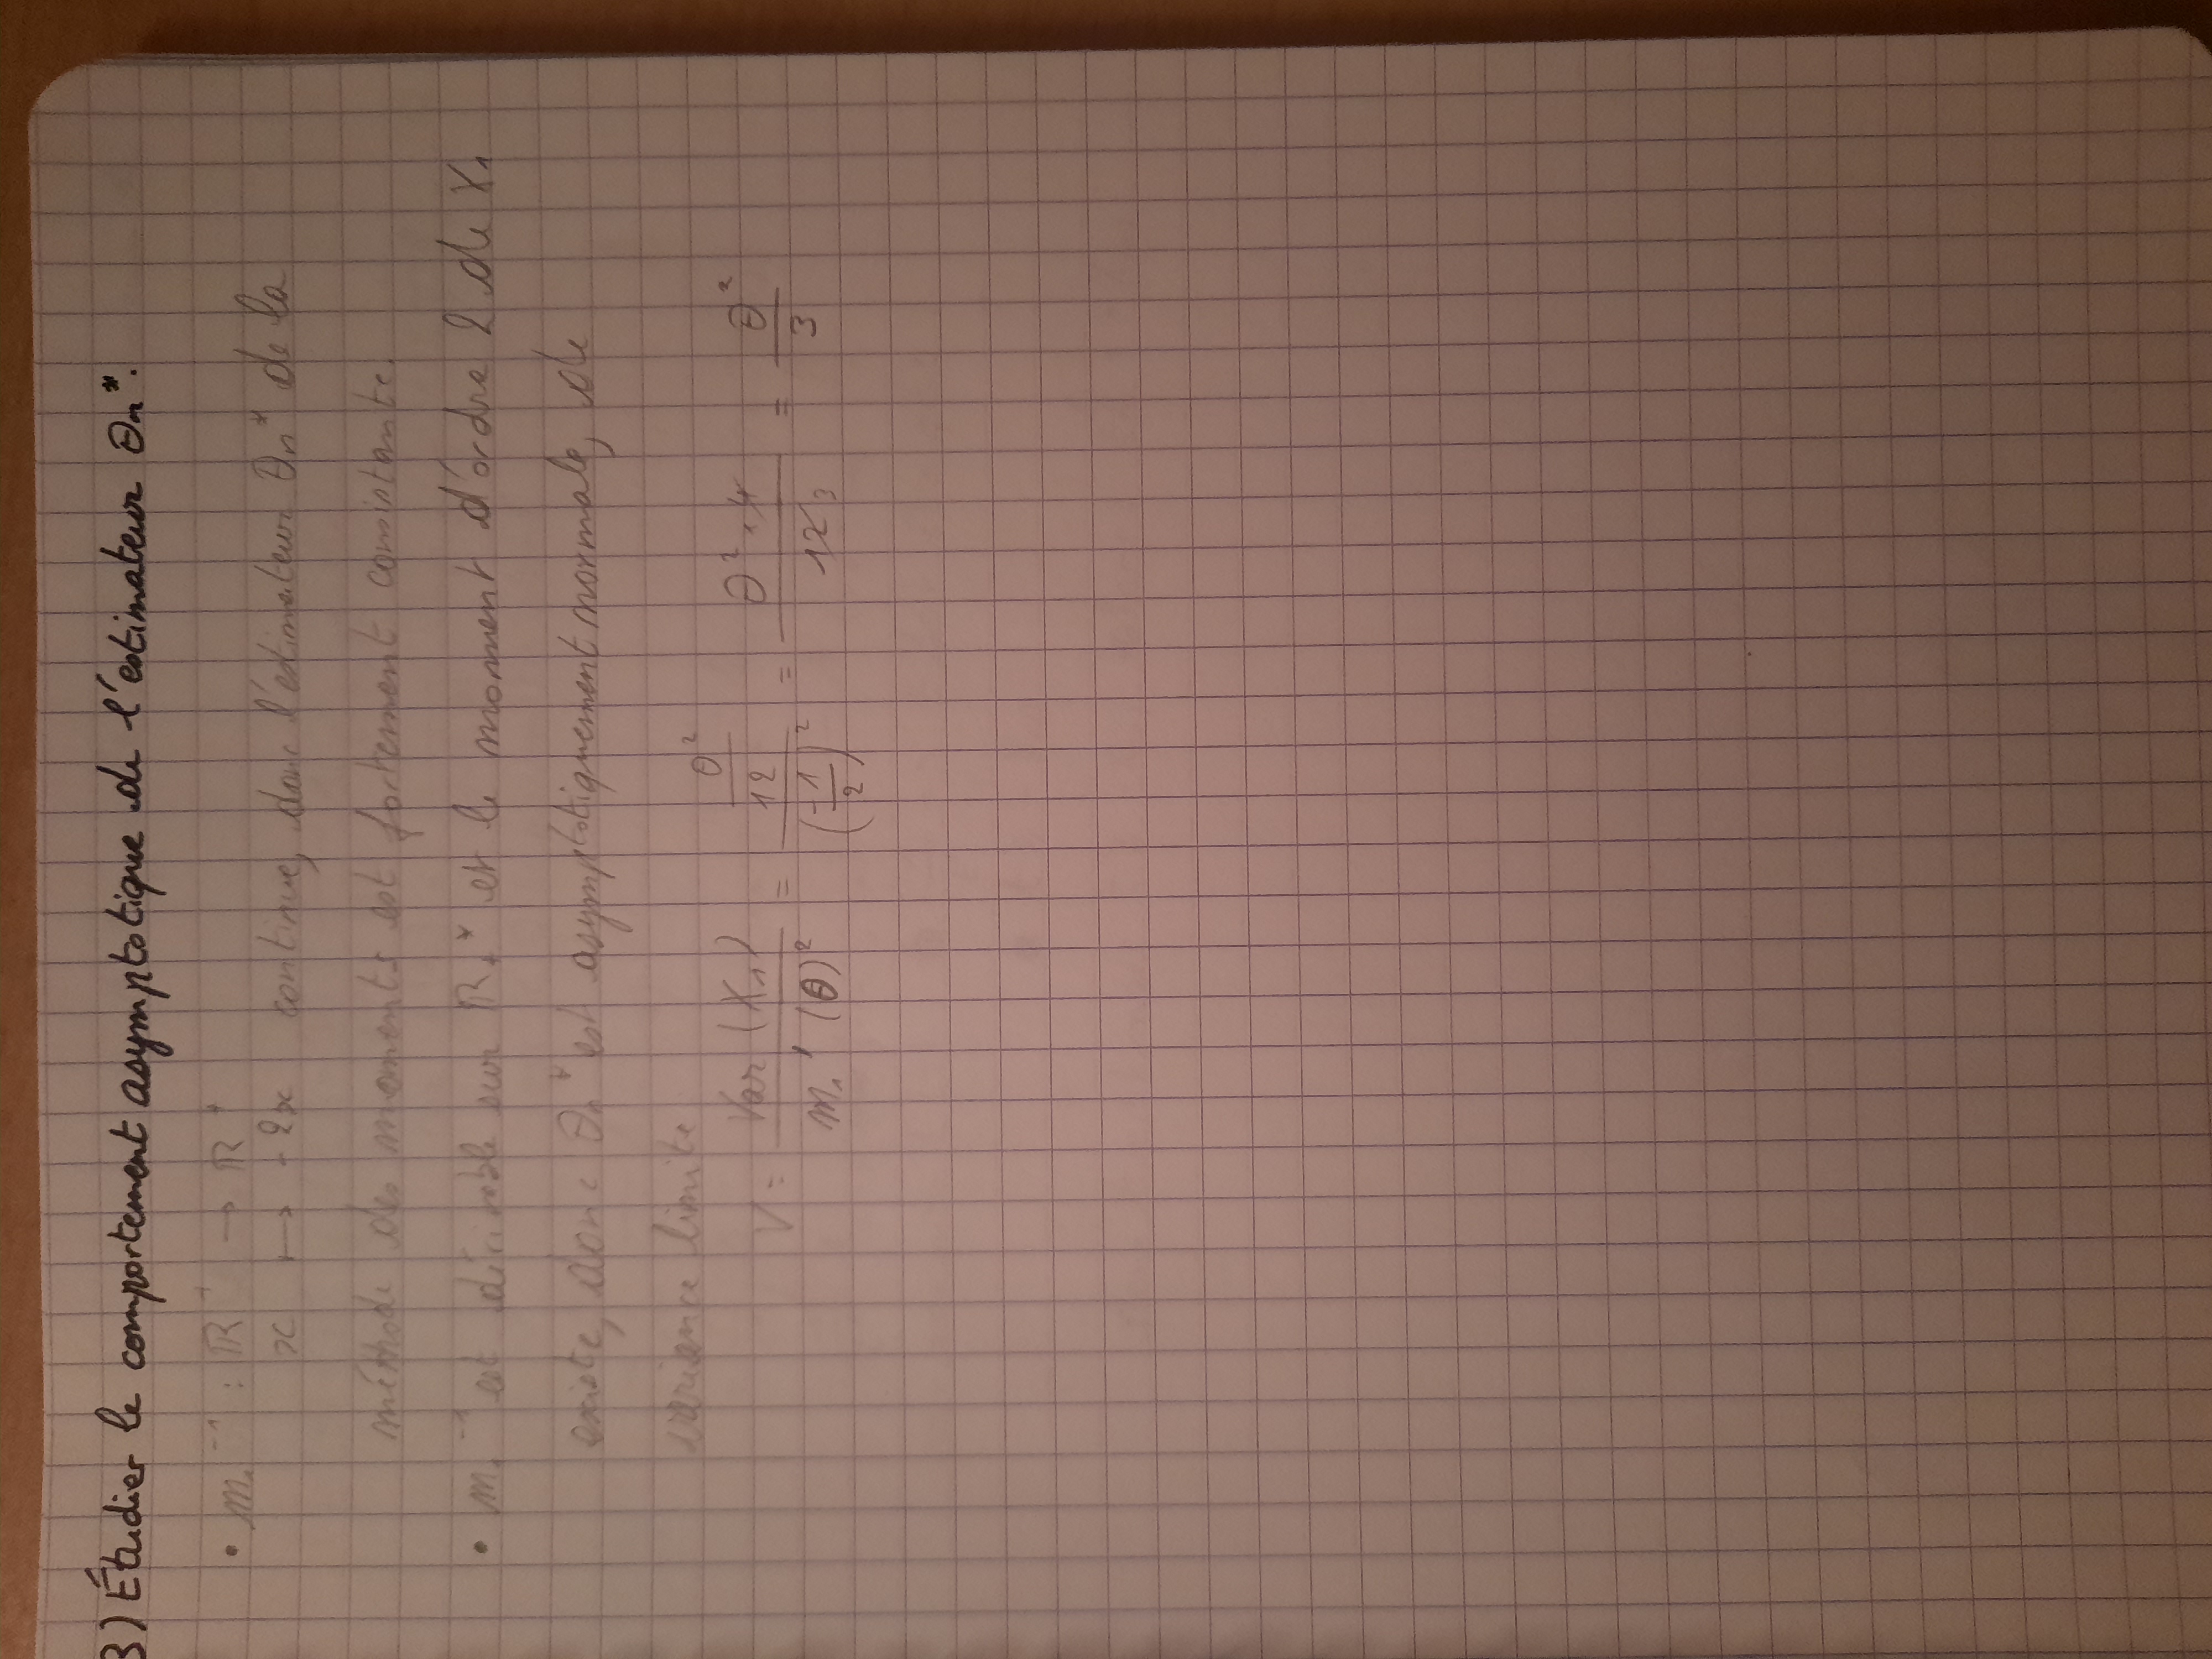 3) Étudier le comportement asymptotique de l'estimateur θn*.
• m₁⁻¹ : ℝ⁻ → ℝ⁺
x ↦ -2x continue, donc l'estimateur θn* de la
méthode des moments est fortement consistante.
• m₁⁻¹ est dérivable sur ℝ₊* et le moment d'ordre 2 de X₁
existe, donc θn* est asymptotiquement normale, de
variance limite
V = Var (X₁) / m₁' (θ)² = (θ² / 12) / (-1 / 2)² = θ² · 4 / 12 3 = θ² / 3